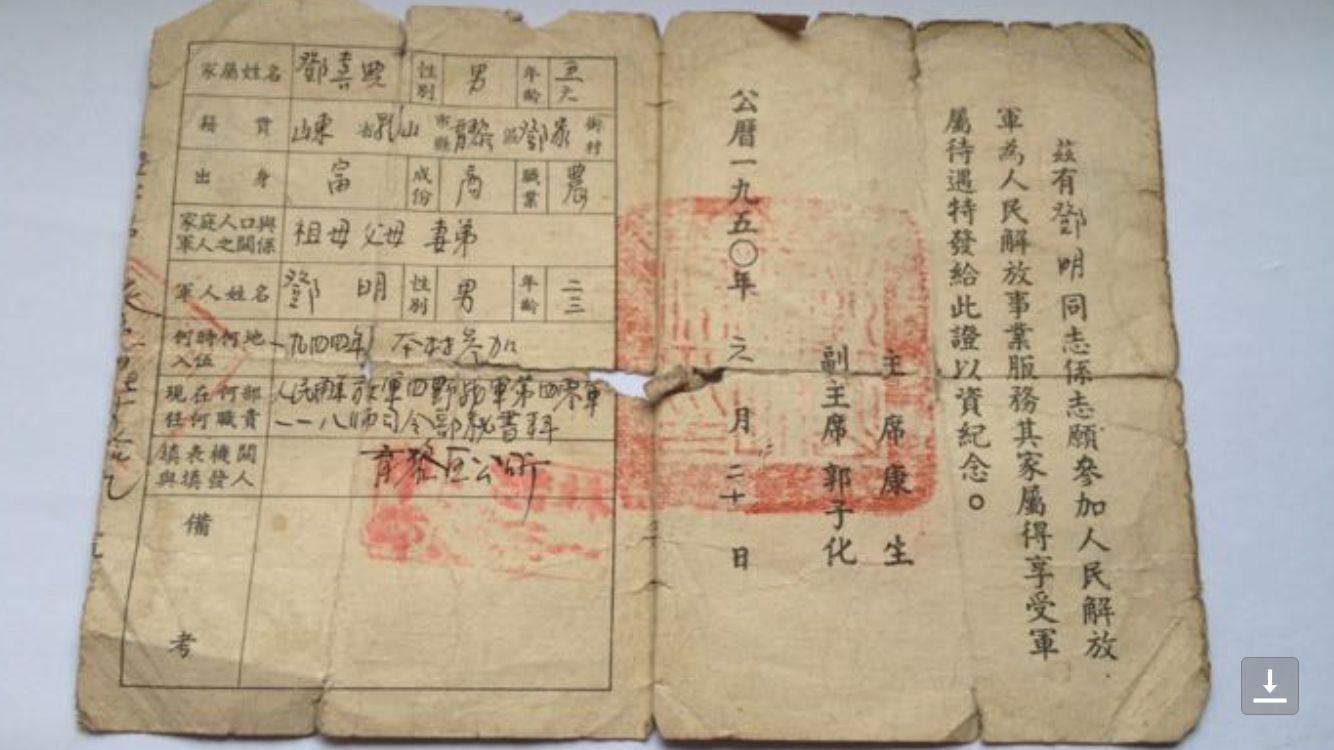 茲有鄧明同志係志願參加人民解放
軍為人民解放事業服務其家屬得享受軍
屬待遇特發給此證以資紀念。
主席康生
副主席郭子化
公曆一九五〇年 六月二十日
家屬姓名 鄧 性別 男 年齡 五六
籍貫 山東省乳山市縣育黎區鄧家街村
出身 富 成份 商 職業 農
家庭人口與軍人之關係 祖母父母 妻弟
軍人姓名 鄧明 性別 男 年齡 二三
何時何地入伍 一九四四年 本村參加
現在何部任何職責 人民解放軍四野戰軍第四界軍
一一八師司令部秘書科
填表機關與填發人 育黎區公所
備考